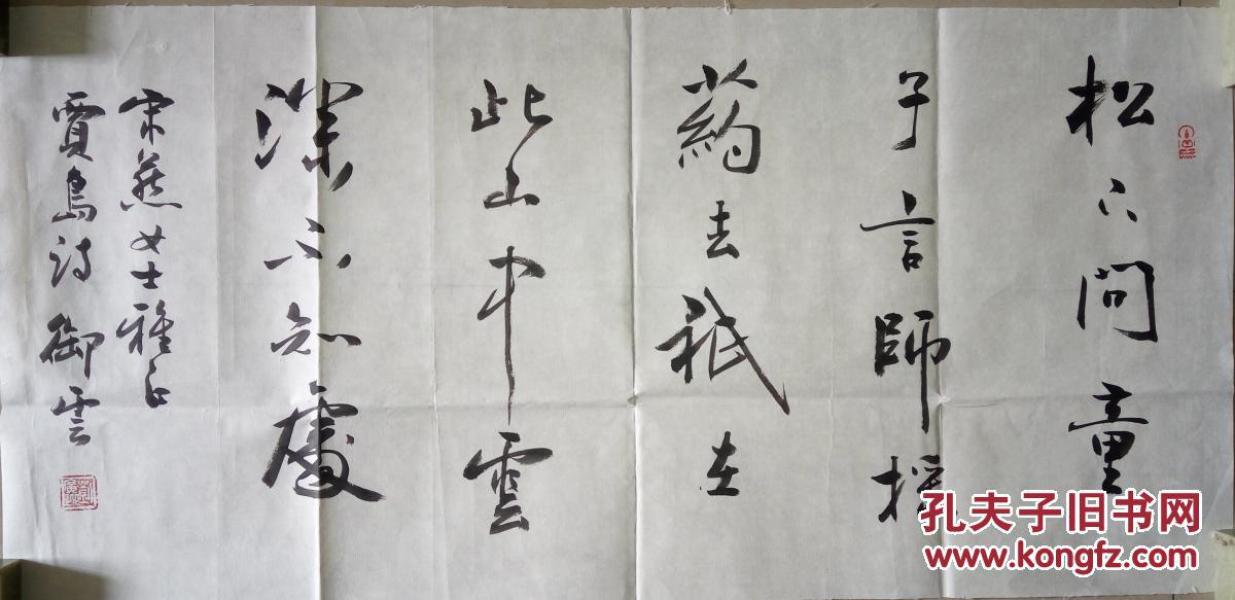 松下問童
子言師採
藥去祇在
此山中雲
深不知處
宋燕女士雅正
賈島詩 御雲
孔夫子旧书网
www.kongfz.com